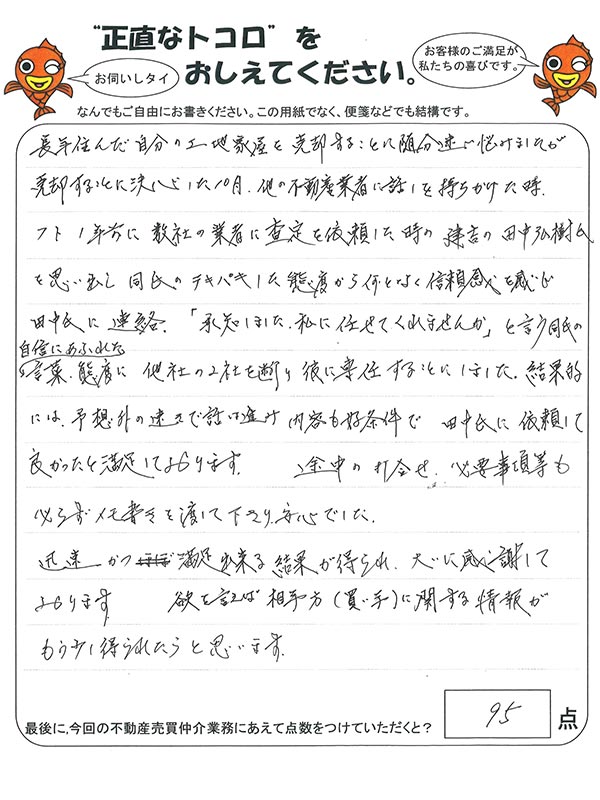 "正直なトコロ"を
おしえてください。
お伺いしタイ
お客様のご満足が
私たちの喜びです。
なんでもご自由にお書きください。この用紙でなく、便箋などでも結構です。
長年住んだ自分の土地家屋を売却することに随分迷い悩みましたが
売却することに決心した10月、他の不動産業者に話しを持ちかけた時、
フト1年前に数社の業者に査定を依頼した時の 建吉の田中弘樹氏
を思い出し同氏のテキパキした態度から何となく信頼感を感じ
田中氏に連絡、「承知しました、私に任せてくれませんか」と言う同氏の
自信にあふれた
言葉、態度に他社の2社を断り彼に専任することにしました。結果的
には、予想外の速さで話は進み 内容も好条件で 田中氏に依頼して
良かったと満足しております。 途中の打合せ、必要事項等も
必らずメモ書きを渡して下さり、安心でした。
迅速かつほぼ満足出来る結果が得られ、大いに感謝して
おります 欲を言えば相手方(買い手)に関する情報が
もう少し得られたらと思います。
最後に、今回の不動産売買仲介業務にあえて点数をつけていただくと?
95
点